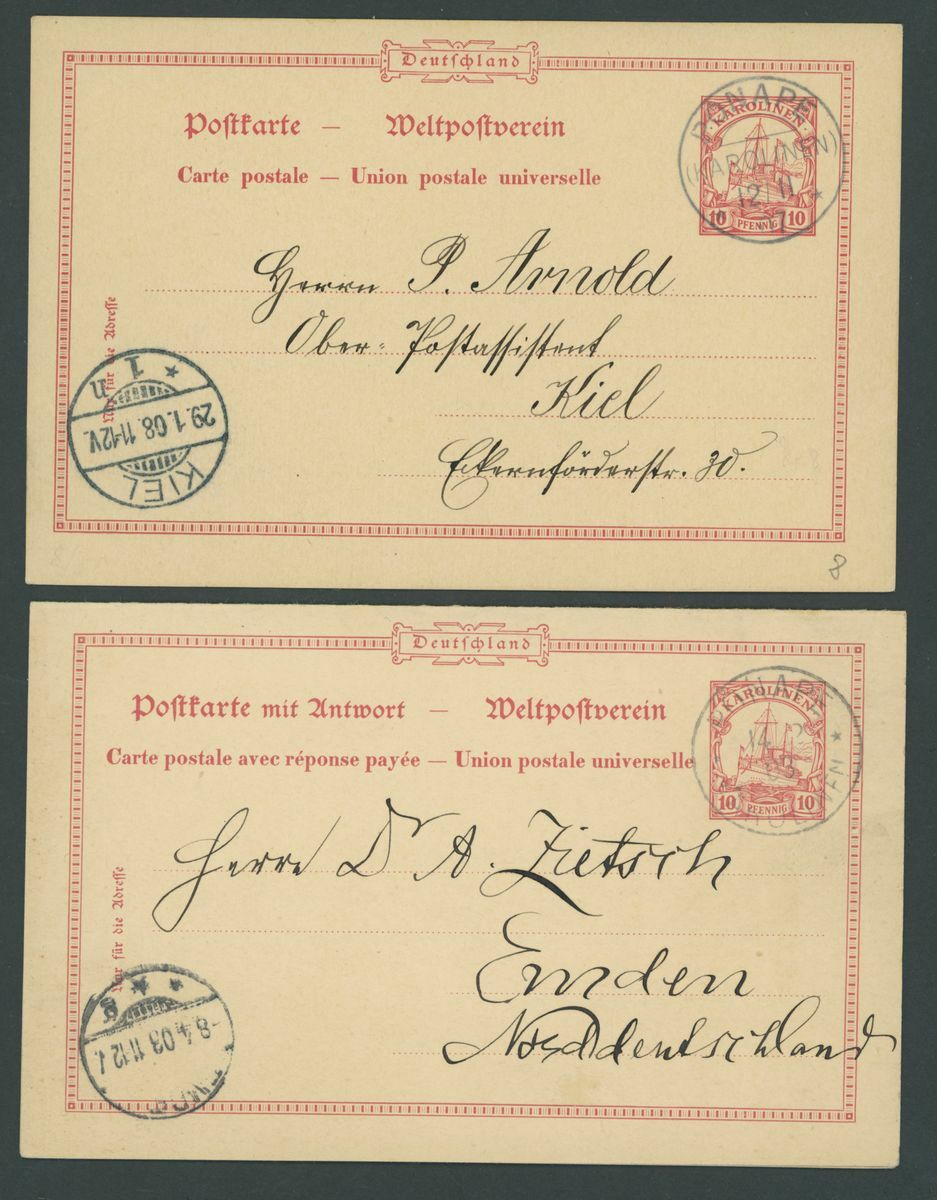 Deutschland
Postkarte — Weltpostverein
Carte postale — Union postale universelle
PONAPE
KAROLINEN
(KAROLINEN)
12/11
10 PFENNIG 10
Herrn P. Arnold
Ober-Postassistent
Kiel
Eckernförderstr. 30.
Nur für die Adresse
* 1 n
29.1.08.11-12V.
KIEL
8
Deutschland
Postkarte mit Antwort — Weltpostverein
Carte postale avec réponse payée — Union postale universelle
KAROLINEN
10 PFENNIG 10
Herrn Dr A. Zietsch
Emden
Norddeutschland
Nur für die Adresse
8.4.03.11-12